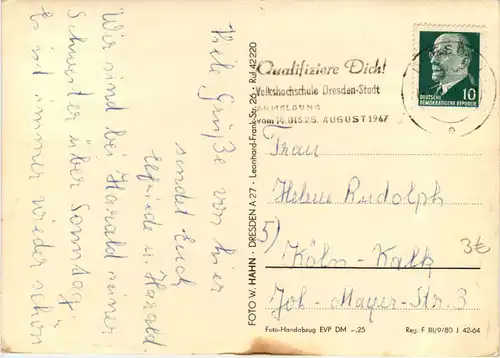 Viele Grüße von hier
sendet Euch
Elfriede u. Harald.
Wir sind bei Harald seiner
Schwester über Sonntag.
Es ist immer wieder schön
FOTO W. HAHN · DRESDEN A 27 · Leonhard-Frank-Str. 26 · Ruf 42220
Qualifiziere Dich!
Volkshochschule Dresden-Stadt
ANMELDUNG
vom 14. BIS 26. AUGUST 1967
DEUTSCHE
DEMOKRATISCHE REPUBLIK
10
Frau
Helene Rudolph
5)
Köln-Kalk
3€
Joh.-Mayer-Str. 3
Foto-Handabzug EVP DM –,25
Reg. F III/9/80 J 42-64